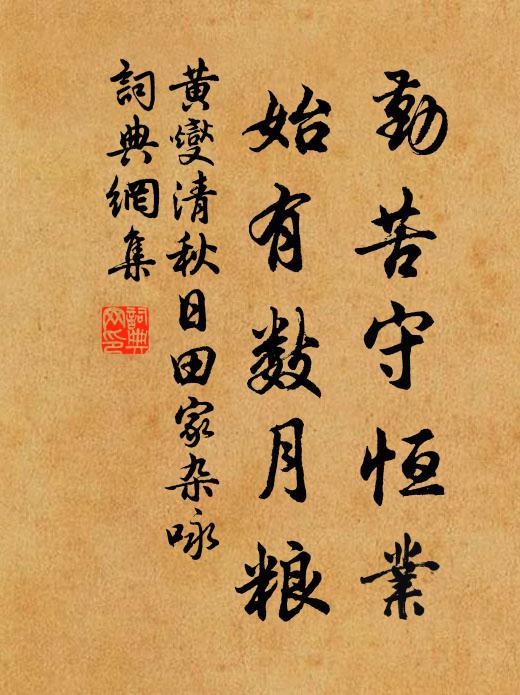 勤苦守恒業
始有数月粮
黄燮清秋日田家杂咏
詞典網集
詞典網印